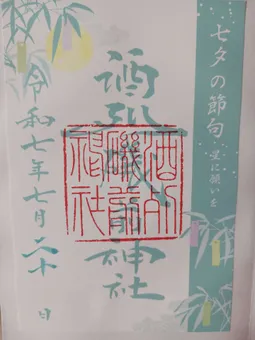 七夕の節句
星に願いを
酒列磯前神社
酒列
磯前
神社
令和七年七月二十日